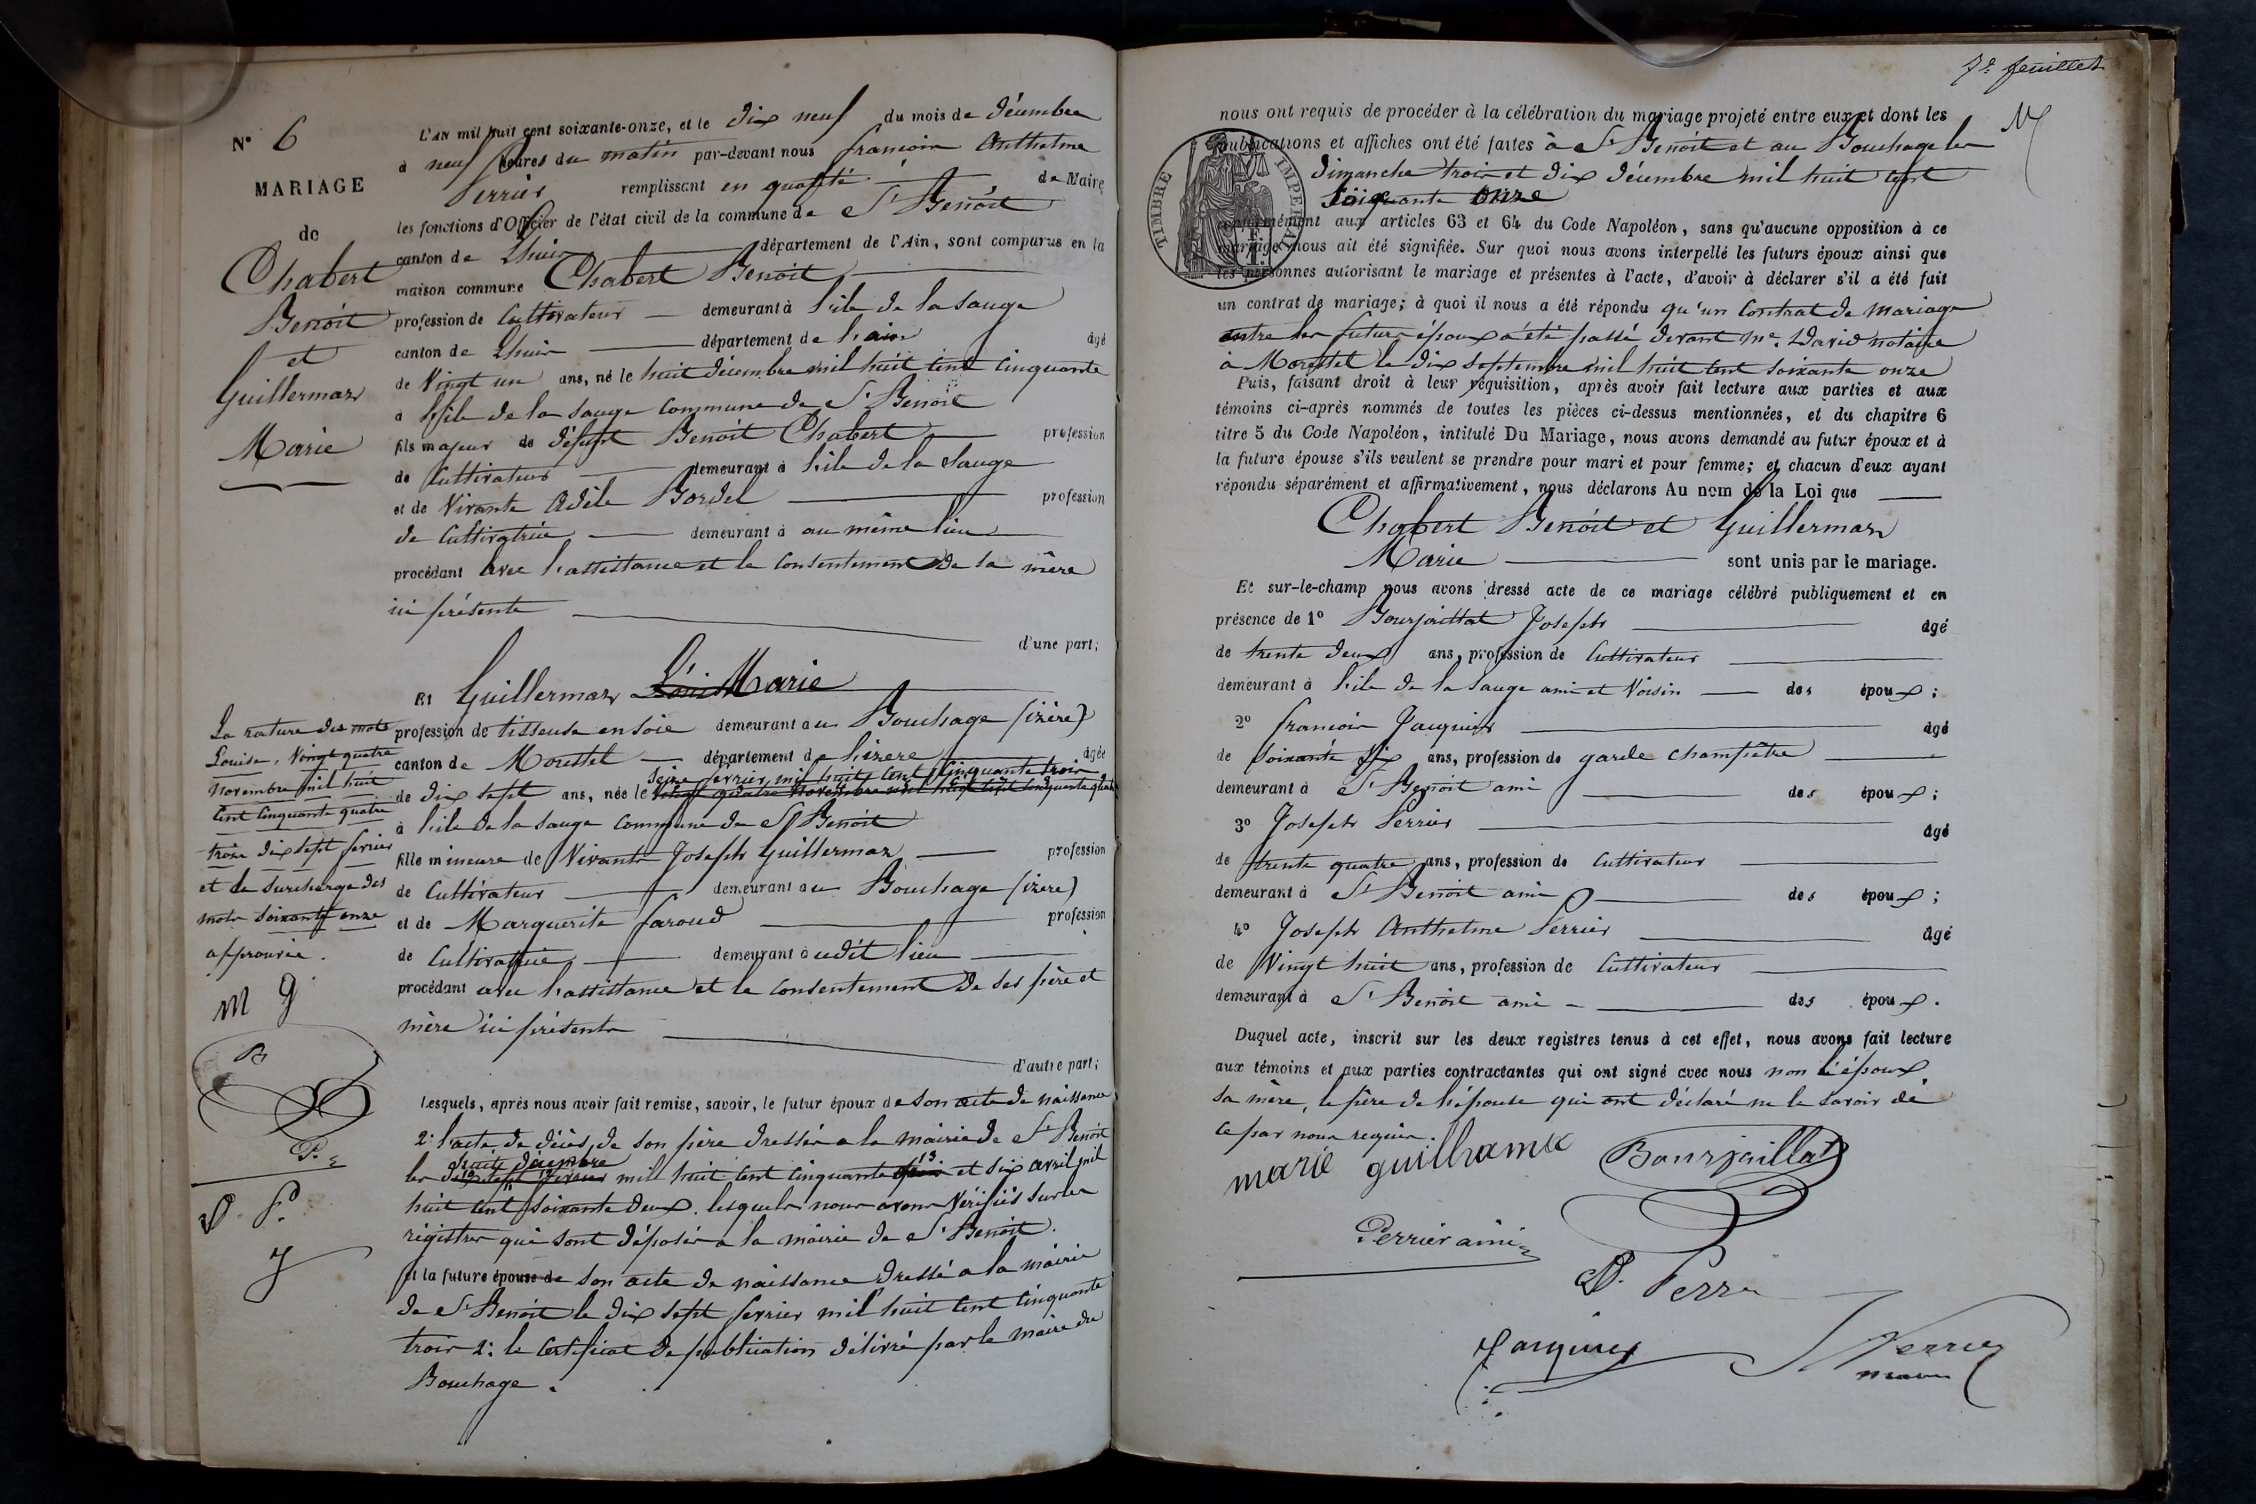 N° 6
MARIAGE
de
Chabert
Benoit
et
Guillermaz
Marie
L'AN mil huit cent soixante-onze, et le dix neuf du mois de décembre
à neuf heures du matin par-devant nous françois Anthelme
Perrier remplissant en qualité de Maire
les fonctions d'Officier de l'état civil de la commune de St Benoit
canton de Lhuis département de l'Ain, sont comparus en la
maison commune Chabert Benoit
profession de Cultivateur demeurant à l'ile de la Sauge
canton de Lhuis département de l'ain âgé
de Vingt un ans, né le huit décembre mil huit cent cinquante
à l'ile de la Sauge commune de St Benoit
fils majeur de défunt Benoit Chabert profession
de Cultivateur demeurant à l'ile de la Sauge
et de Vivante Adèle Bordel profession
de Cultivatrice demeurant à au même lieu
procédant avec l'assistance et le consentement de la mère
ici présente
d'une part;
Et Guillermaz Louise Marie
profession de tisseuse en soie demeurant au Bouchage (izère)
canton de Morestel département de l'izere âgée
seize fevrier mil huit cent cinquante trois
de dix sept ans, née le vingt quatre novembre mil huit cent cinquante quatre
à l'ile de la Sauge commune de St Benoit
fille mineure de Vivants Joseph Guillermaz profession
de Cultivateur demeurant au Bouchage (izere)
et de Marguerite faroud profession
de Cultivatrice demeurant audit lieu
procédant avec l'assistance et le consentement de ses père et
mère ici présents
d'autre part;
La rature des mots
Louise, Vingt quatre
novembre mil huit
cent cinquante quatre
trois dix sept fevrier
et la surcharge des
mots soixante onze
approuvée.
m g
B
P.
D. P.
J
Lesquels, après nous avoir fait remise, savoir, le futur époux de son acte de naissance
2° l'acte de décès de son père dressés a la mairie de St Benoit
huit décembre
les dix sept fevrier mil huit cent cinquante trois et six avril mil
huit cent soixante deux. lesquels nous avons vérifiés sur les
régistres qui sont déposés a la mairie de St Benoit.
et la future épouse de son acte de naissance dressé a la mairie
de St Benoit le dix sept fevrier mil huit cent cinquante
trois 2° le certificat de publication délivré par le maire du
Bouchage.
7e feuillet
nous ont requis de procéder à la célébration du mariage projeté entre eux et dont les
publications et affiches ont été faites à St Benoit et au Bouchage les
dimanche trois et dix décembre mil huit cent
soixante onze
TIMBRE IMPERIAL
conformément aux articles 63 et 64 du Code Napoléon, sans qu'aucune opposition à ce
mariage nous ait été signifiée. Sur quoi nous avons interpellé les futurs époux ainsi que
les personnes autorisant le mariage et présentes à l'acte, d'avoir à déclarer s'il a été fait
un contrat de mariage; à quoi il nous a été répondu qu'un Contrat de Mariage
entre les futurs époux a été passé devant Me David notaire
à Morestel le dix septembre mil huit cent soixante onze
Puis, faisant droit à leur réquisition, après avoir fait lecture aux parties et aux
témoins ci-après nommés de toutes les pièces ci-dessus mentionnées, et du chapitre 6
titre 5 du Code Napoléon, intitulé Du Mariage, nous avons demandé au futur époux et à
la future épouse s'ils veulent se prendre pour mari et pour femme; et chacun d'eux ayant
répondu séparément et affirmativement, nous déclarons Au nom de la Loi que
Chabert Benoit et Guillermaz
Marie sont unis par le mariage.
Et sur-le-champ nous avons dressé acte de ce mariage célébré publiquement et en
présence de 1° Bourjaillat Joseph âgé
de trente deux ans, profession de Cultivateur
demeurant à l'ile de la Sauge ami et Voisin des époux;
2° françois Jacquier âgé
de soixante six ans, profession de garde champêtre
demeurant à St Benoit ami des époux;
3° Joseph Perrier âgé
de trente quatre ans, profession de Cultivateur
demeurant à St Benoit ami des époux;
4° Joseph Anthelme Perrier âgé
de Vingt huit ans, profession de Cultivateur
demeurant à St Benoit ami des époux.
Duquel acte, inscrit sur les deux registres tenus à cet effet, nous avons fait lecture
aux témoins et aux parties contractantes qui ont signé avec nous non l'époux
sa mère, le père de l'épouse qui ont déclaré ne le savoir de
ce par nous requis.
marie guilhamé Bourjaillat
Perrier aimé
D. Perr
Jacquier Perrier
maire